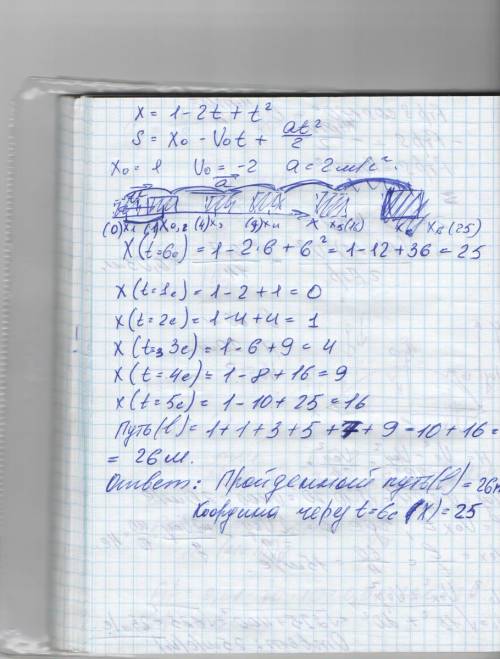 X = 1-2t+t²
S = X₀ - V₀t + at²/2
X₀ = 1 V₀ = -2 a = 2 м/с².
a
(0)X₁ (1)X₀,₂ (4)X₃ (9)X₄ X X₅(16) X₆ X₆(25)
X(t=6с) = 1-2·6+6² = 1-12+36 = 25
X(t=1с) = 1-2+1 = 0
X(t=2с) = 1-4+4 = 1
X(t=3с) = 1-6+9 = 4
X(t=4с) = 1-8+16 = 9
X(t=5с) = 1-10+25 = 16
Путь(l) = 1+1+3+5+7+9=10+16=
= 26 м.
Ответ: Пройденный путь(l)=26м
Координа через t=6с (X)=25